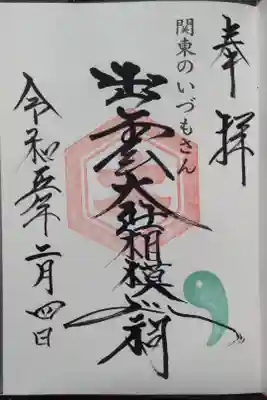 奉拝
関東のいづもさん
出雲大社相模分祠
令和五年二月四日